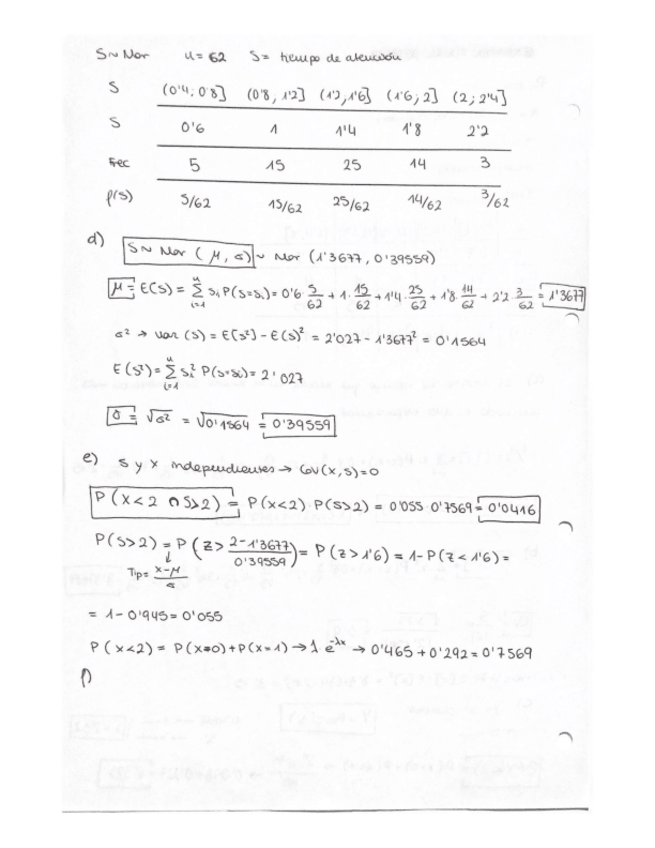 S~ Nor u= 62 S= tiempo de atención
S (0'4; 0'8] (0'8; 1'2] (1'2; 1'6] (1'6; 2] (2; 2'4]
S 0'6 1 1'4 1'8 2'2
Frec 5 15 25 14 3
P(s) 5/62 15/62 25/62 14/62 3/62
d) S~ Nor (μ, σ) ~ Nor (1'3677, 0'39559)
μ = E(S) = Σ_{i=1}^{u} si P(S=si) = 0'6 · 5/62 + 1 · 15/62 + 1'4 · 25/62 + 1'8 · 14/62 + 2'2 · 3/62 = 1'3677
σ² → Var (S) = E(S²) - E(S)² = 2'027 - 1'3677² = 0'1564
E(S²) = Σ_{i=1}^{u} si² P(S=si) = 2'027
σ = √σ² = √0'1564 = 0'39559
e) S y X independientes → Cov(X,S)=0
P(X<2 ∩ S>2) = P(X<2) · P(S>2) = 0'055 · 0'7569 = 0'0416
P(S>2) = P(Z > (2-1'3677)/0'39559) = P(Z>1'6) = 1-P(Z<1'6) =
Tip= (X-μ)/σ
= 1-0'945 = 0'055
P(X<2) = P(X=0)+P(X=1) → λ e^{-λx} → 0'465 + 0'292 = 0'7569
f)